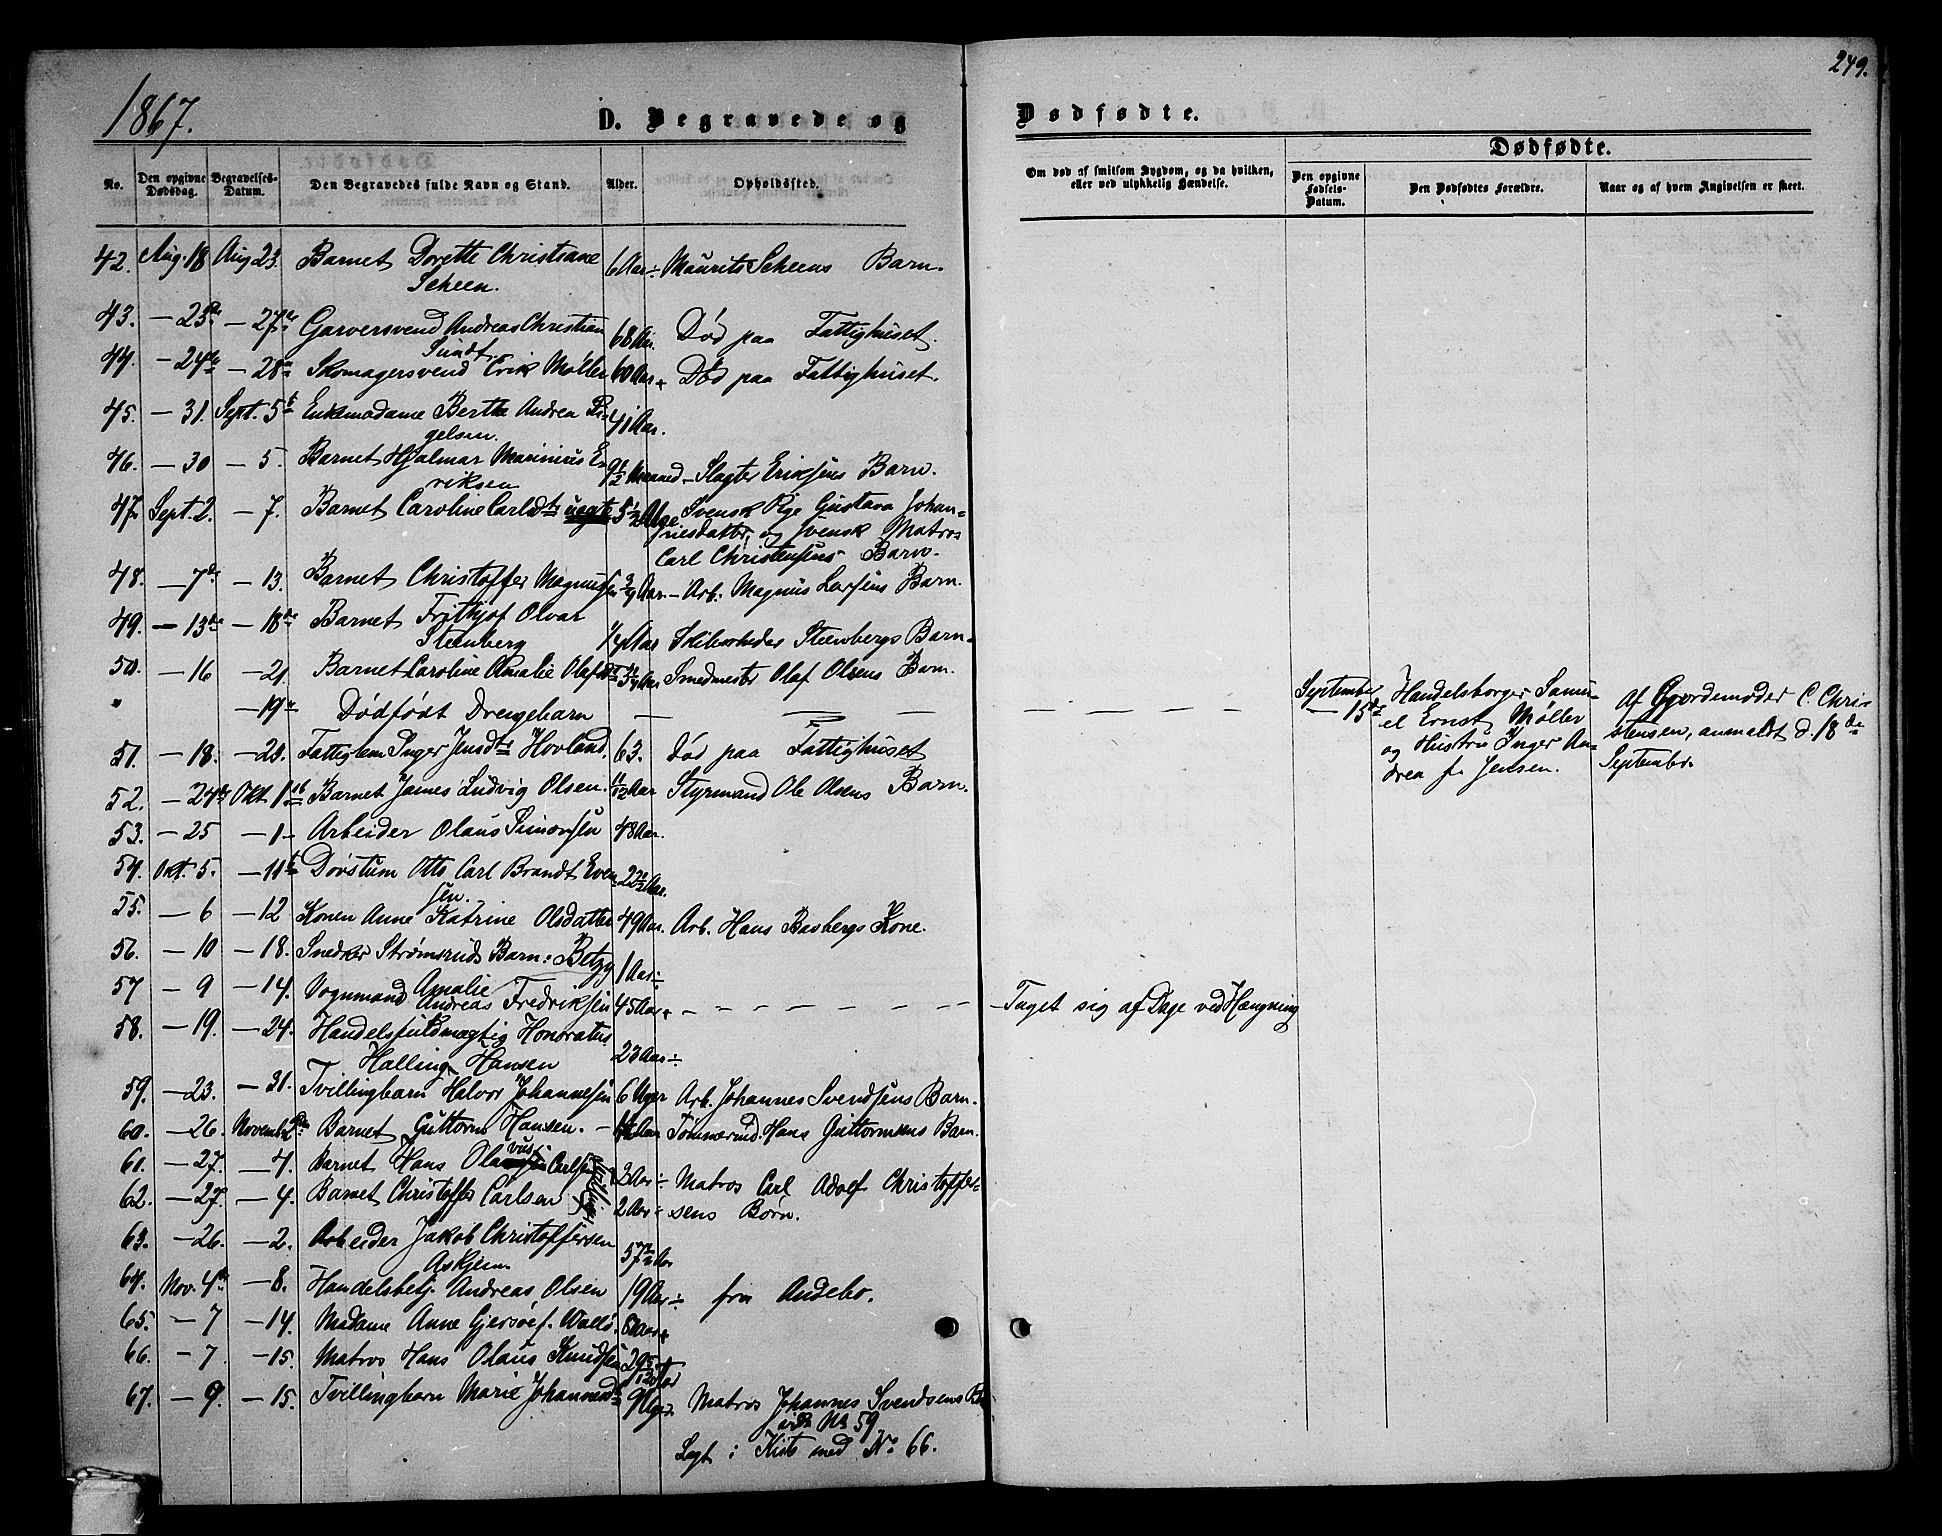 249.
1867.
D. Begravede og Dødfødte.
Dødfødte.
No. Den opgivne Dødsdag. Begravelses-Datum. Den Begravedes fulde Navn og Stand. Alder. Opholdssted. Om død af smitsom Sygdom, og da hvilken, eller ved ulykkelig Hændelse. Den opgivne Fødsels-Datum. Den Dødfødtes Forældre. Naar og af hvem Angivelsen er skeet.
42. Aug. 18 Aug 23. Barnet Dorette Christiane 6 Aar ÷ Maurits Scheens Barn.
Scheen.
43. — 23de — 27de Garversvend Andreas Christian 68 Aar. Død paa Fattighuset.
Sundt
44. — 24de — 28de Skomagersvend Erik Møller 60 Aar + Død paa Fattighuset.
45. — 31. Sept. 5te Enkemadame Berthe Andrea
gelsen. 41 Aar.
46. — 30 — 5. Barnet Hjalmar Marinius E-
riksen 9½ Maaned — Slagter Eriksens Barn.
47. Sept. 2. — 7. Barnet Caroline Carlsdtr uegte 5½ Uge Svensk Pige Gustava Johan-
nesdatter og svensk Matros
Carl Christensens Barn.
48. — 7de — 13. Barnet Christoffer Magnussen ¾ Aar. — Arb. Magnus Larsens Barn.
49. — 13de — 18de Barnet Frithjof Olvar
Steenberg ¼ Aar Skibsarbeider Steenbergs Barn
50. — 16 — 21. Barnet Caroline Amalie Olafsdtr Aar Smedmester Olaf Olsens Barn.
" — 19de Dødfødt Drengebarn — — — September — 15de Handelsborger Samu-
el Ernst Møller
og Hustru Inger An-
drea f. Jensen. Af Gjordemoder C. Chri-
stensen, anmeldt d. 18de
September.
51. — 18. — 23. Fattiglem Inger Jensdtr Hovland, 63. Død paa Fattighuset
52. — 24de Okt. 1 Barnet James Ludvig Olsen. 11/12 Aar Styrmand Ole Olsens Barn.
53. — 25 — 1 — Arbeider Olaus Simonsen 48 Aar.
54. Okt. 5. — 11te Døvstum Otto Carl Brandt Even-
sen. 22½ Aar.
55. — 6 — 12 Konen Anne Katrine Olsdatter 49 Aar. Arb. Hans Basbergs Kone.
56. — 10 — 18. Snedker Strømsruds Barn: Betzy
Amalie 1 Aar ÷
57 — 9 — 14. Vognmand Andreas Fredriksen 45 Aar + — — — Taget sig af Dage ved Hængning
58. — 19. — 24. Handelsfuldmægtig Honoratus
Halling Hansen 23 Aar ÷
59. — 23. — 31. Tvillingbarn Halvor Johannesen 6 Uger Arb. Johannes Svendsens Barn.
60. — 26. Novemb. 2den Barnet Guttorm Hansen. — Aar Tømmermd. Hans Guttormsens Barn.
61. — 27. — 4. Barnet Hans Olavus Carlsen 3 Aar ÷ Matros Carl Adolf Christoffer-
62. — 27. — 4. Barnet Christoffer Carlsen 2 Aar ÷ sens Børn.
63. — 26. — 2. Arbeider Jakob Christoffersen
Askjem 57½ Aar
64. Nov. 4de — 8. Handelsbetj. Andreas Olsen 19 Aar ÷ fra Andebo.
65. — 7 — 14. Madame Anne Gjersøe f. Wallø. Aar +
66. — 7. — 15. Matros Hans Olaus Knudsen 29 5/12 Aar
67. — 9. — 15. Tvillingbarn Marie Johannesdtr 9 Uger Matros Johannes Svendsens
vide No 59
Lagt i Kiste med No. 66.